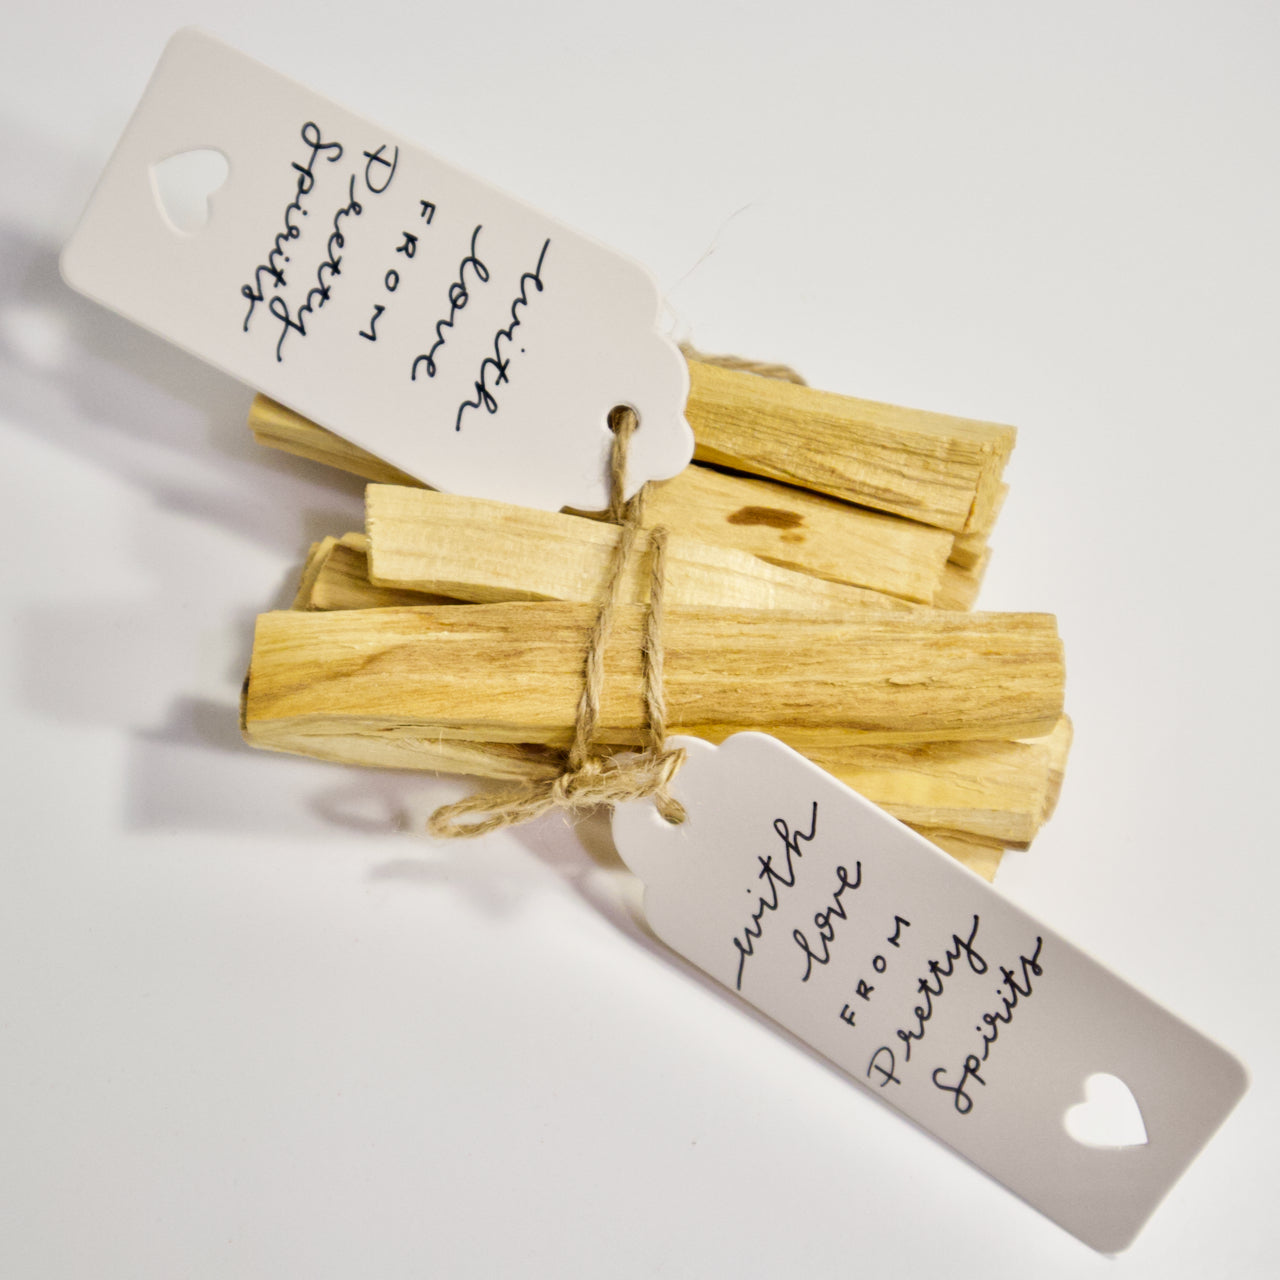 with
love
FROM
Pretty
Spirits
with
love
FROM
Pretty
Spirits